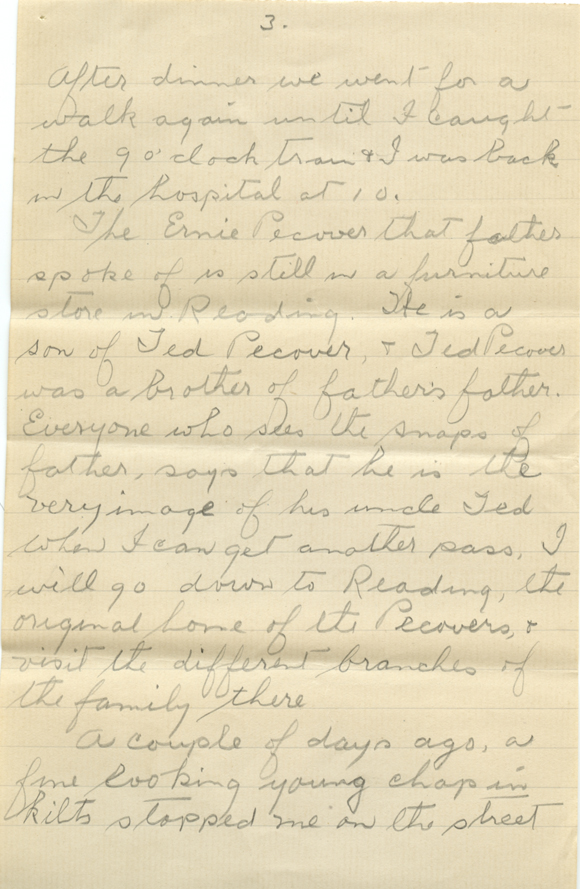 3.
After dinner we went for a
walk again until I caught
the 9 o'clock train & I was back
in the hospital at 10.
The Ernie Pecover that father
spoke of is still in a furniture
store in Reading. He is a
son of Ted Pecover, & Ted Pecover
was a brother of father's father.
Everyone who sees the snaps of
father, says that he is the
very image of his uncle Ted
When I can get another pass, I
will go down to Reading, the
original home of the Pecovers, &
visit the different branches of
the family there
A couple of days ago, a
fine looking young chap in
kilts stopped me on the street